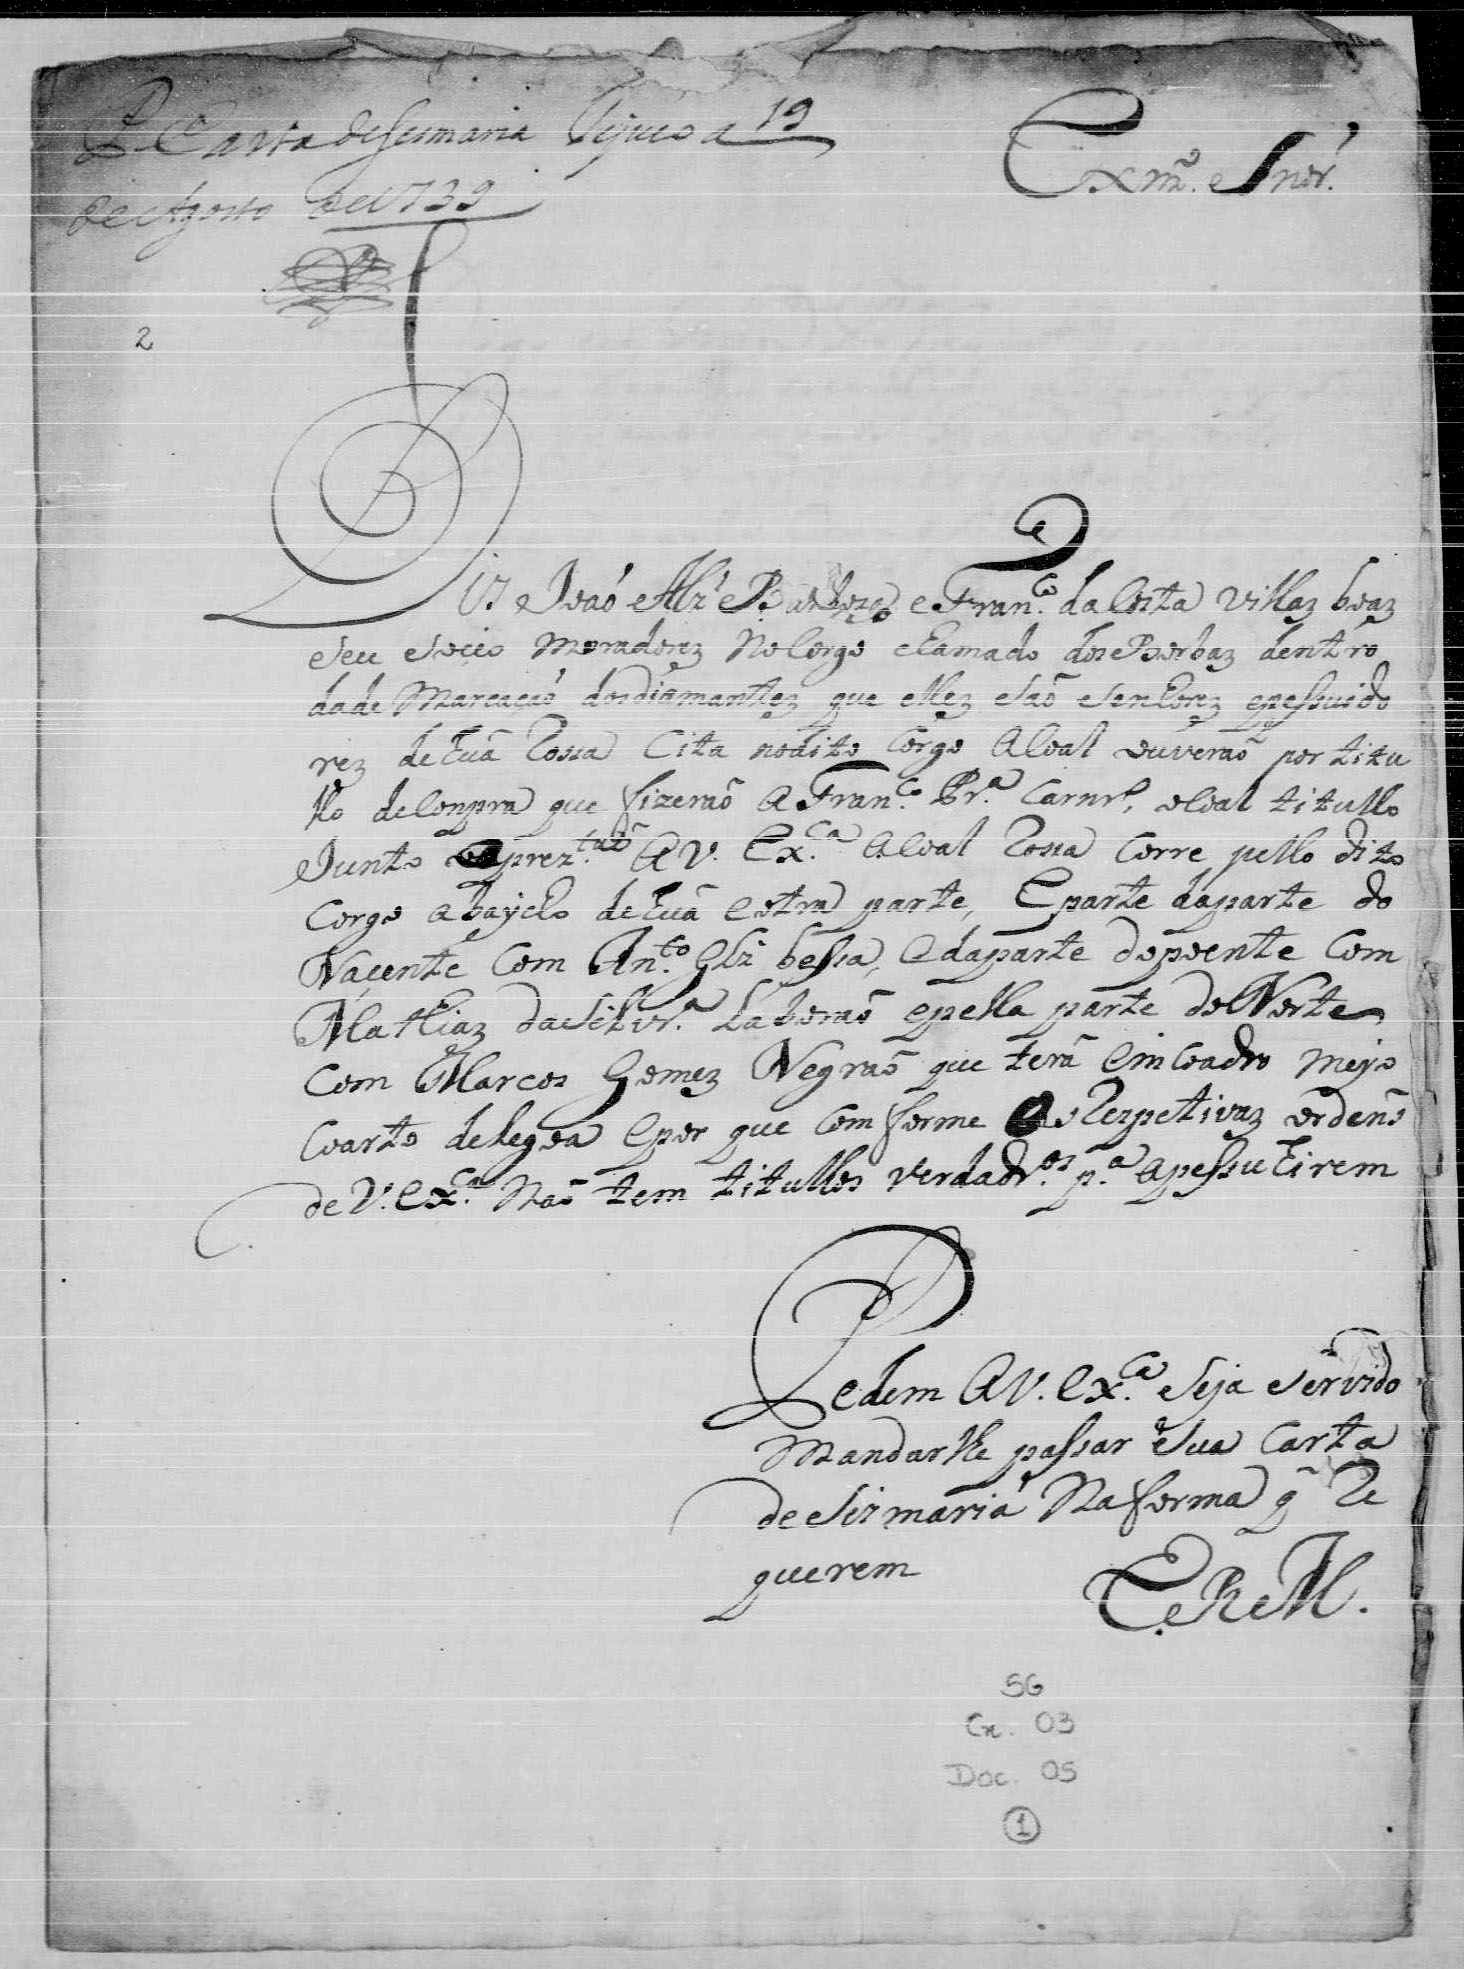 P. Carta de Sesmaria Tejuco a 19
de Agosto de 1739
Exmº. e Snor.
2
Diz João Alz' Barboza e Franco. da Costa Villaz boaz
seu socio moradorez No Corgo chamado dos Borbaz dentro
da de Marcação dos diamantez que ellez são senhorez e pessuido
rez de huã Rossa Cita no dito Corgo A Coal ouverão por titu
llo de Conpra que fizerão A Franco. Prª. Carnrº. o Coal titullo
Junto AV. Exca. A Coal Rossa Corre pello dito
Corgo abayxo de huã e otra parte, E parte da parte do
Naçente Com Anto. Glz bessa, e da parte do poente Com
Mathiaz da Silvrª. e pella parte do Norte
Com Marcos Gomez Negrão que terá em Coadro meyo
Coarto de legoa e por que Comforme As Respetivaz ordens
de V. Exca. Não tem titullos verdadros. pª. a pessuhirem
Pedem AV. Exca. Seja Servido
Mandarlhe passar Sua Carta
de Sizmaria Na forma q̃ Re
querem
E. R. M.
56
Cx. 03
Doc. 05
1